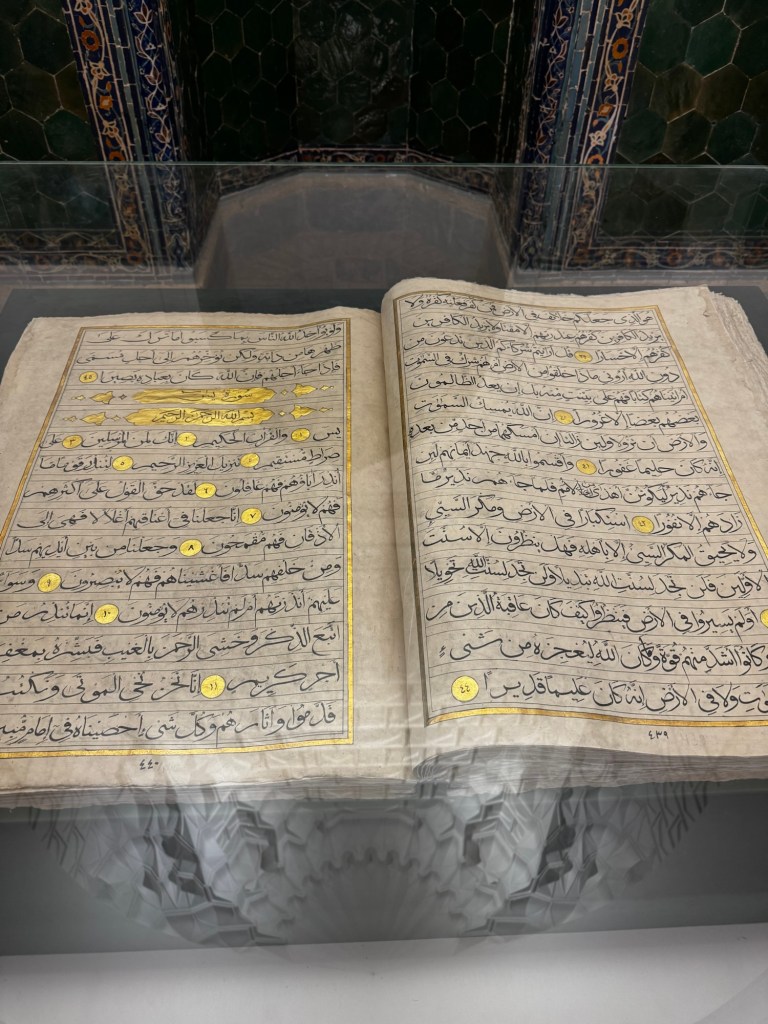 هو الذي جعلكم خلائف في الارض فمن كفر فعليه كفره ولا
يزيد الكافرين كفرهم عند ربهم الا مقتا ولا يزيد الكافرين
كفرهم الا خسارا ٣٩ قل ارايتم شركاءكم الذين تدعون من
دون الله اروني ماذا خلقوا من الارض ام لهم شرك في السموات
ام اتيناهم كتابا فهم على بينت منه بل ان يعد الظالمون
بعضهم بعضا الا غرورا ٤٠ ان الله يمسك السموات
والارض ان تزولا ولئن زالتا ان امسكهما من احد من بعده
انه كان حليما غفورا ٤١ واقسموا بالله جهد ايمانهم لئن
جاءهم نذير ليكونن اهدى من احدى الامم فلما جاءهم نذير ما
زادهم الا نفورا ٤٢ استكبارا في الارض ومكر السيئ
ولا يحيق المكر السيئ الا باهله فهل ينظرون الا سنت
الاولين فلن تجد لسنت الله تبديلا ولن تجد لسنت الله تحويلا
اولم يسيروا في الارض فينظروا كيف كان عاقبة الذين من
وكانوا اشد منهم قوة وما كان الله ليعجزه من شيء
ولا في الارض انه كان عليما قديرا ٤٤
٤٣٩
ولو يؤاخذ الله الناس بما كسبوا ما ترك على
ظهرها من دابة ولكن يؤخرهم الى اجل مسمى
فاذا جاء اجلهم فان الله كان بعباده بصيرا ٤٥
سورة يس
بسم الله الرحمن الرحيم
يس ١ والقران الحكيم ٢ انك لمن المرسلين ٣ على
صراط مستقيم ٤ تنزيل العزيز الرحيم ٥ لتنذر قوما ما
انذر اباؤهم فهم غافلون ٦ لقد حق القول على اكثرهم
فهم لا يؤمنون ٧ انا جعلنا في اعناقهم اغلالا فهي الى
الاذقان فهم مقمحون ٨ وجعلنا من بين ايديهم سدا
ومن خلفهم سدا فاغشيناهم فهم لا يبصرون ٩ وسواء
عليهم ءانذرتهم ام لم تنذرهم لا يؤمنون ١٠ انما تنذر من
اتبع الذكر وخشي الرحمن بالغيب فبشره بمغفرة
اجر كريم ١١ انا نحن نحي الموتى ونكتب
قدموا واثارهم وكل شيء احصيناه في امام مبين
٤٤٠